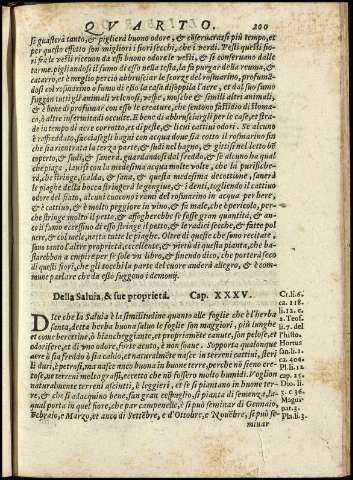 QVARTO. 200
si guasterà tanto, & piglierà buono odore, & conseruerassi più tempo, et
per questo effetto son migliori i fiori secchi, che i verdi. Posti questi fio-
ri fra le vesti riceuon da essi buono odore le vesti, & si conseruano dalle
tarme. pigliandosi il fumo di esso nella testa, le fa purga della reuma, &
catarro, et è meglio perciò abbrusciar le scorze del rosmarino, profumā-
dosi col rosmarino o fumo di esso la casa
fuggon tutti gli animali velenosi, vespe, mosche & simili altri animali,
& è bene di profumar con esso le creature, che sentono fastidio di stoma-
co, & altre infermità occulte. E bene di abbrusciargli per le case, et stra-
de in tempo di aere corrotto, et di peste, & di lieui cattiui odori. Se alcuno
è raffreddato, facciasegli bagni con acqua doue sia cotto il rosmarino sin
che sia ricreata la terza parte, & sudi nel bagno, & gittisi nel letto bē
coperto, & sudi, & sanerà, guardandosi dal freddo, & se alcuno ha qual
che piaga, lauisi con la medesima acqua molte volte, che la purifiche-
rà, che stringe, scalda, & sana, & questa medesima decottione, sanerà
le piaghe della bocca stringerà le gengiue, & i denti, togliendo il cattiuo
odore del fiato, alcuni cuocono i rami del rosmarino in acqua per bere,
& è cattiua, & è molto peggiore in vino & fa male, che è pericolo, per-
che stringe molto il petto, & affogherebbe se fosse gran quantità, & an-
co il fumo eccessiuo di esso stringe il petto, & le radici secche, & fatte pol-
uere, & col miele, netta tutte le piaghe. Oltre di queste che ho recitate
sono tante altre proprietà eccellente, & virtù di questa pianta, che ba-
starebbon a empire per se solo vn libro, & finendo dico, che porterà seco
di questi fiori, che gli tocchi la parte del cuore anderà allegro, & è com-
mune parlare che da esso fuggono i demonij.
Della Saluia, & sue proprietà. Cap. XXXV.
DIce che la Saluia è la similitudine quanto alle foglie che è l'herba
santa, detta herba buona saluo le foglie son maggiori, più lunghe
et com berrettine, o biancheggiante, et propriamēte canute, son pelose, et
odorifere, et di vno odore, forte acuto, & non soaue. S'opporta qualunque
aere o sia freddo o sia caldo, et naturalmēte nasce in terreni cattiui, steri
li duri, & petrosi, ma nasce anco buona in buone terre, perche nō sieno cre-
tose, ne terreni molto grassi, eccetto che nō fossero molto humidi. Voglion
naturalmente terreni asciutti, & leggieri, & et se si piantano in buone ter-
re, & che si adacquino bene, fan gran cespuglio, si pianta di semenza, la-
qual porta in quel fiore, che par campanelle, & si può seminar di Gennaio,
Febraio, e Marzo, et anco di Settēbre, e d'Ottobre, e Nouēbre, si può se-
minar
Cr. li. 6.
ca. 118.
li. 12. c.
2. Teof.
li. 7. del
l'histo.
Hortus
san. li. 1.
ca. 404.
Pl. li. 12
cap. 25.
Dio. li.
3. c. 36.
Magnar
par. 3.
Pla. li. 3.